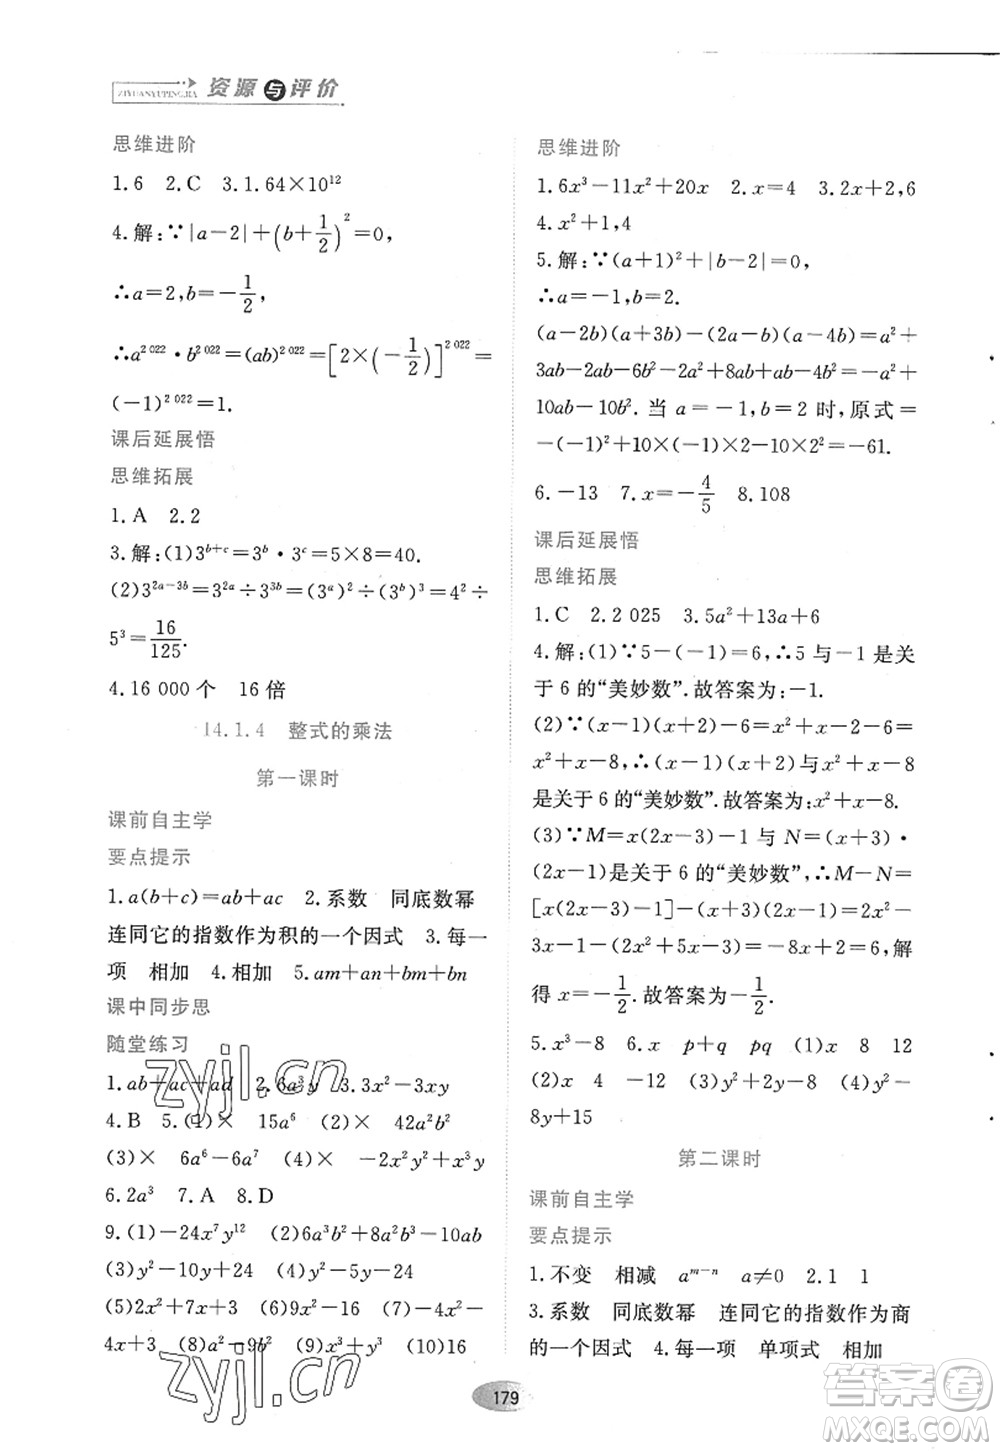 资源与评价
ZIYUANYUPINGJIA
思维进阶
1.6 2.C 3.1.64×10¹²
4.解:∵|a-2|+(b+1/2)²=0,
∴a=2,b=-1/2,
∴a²⁰²²·b²⁰²²=(ab)²⁰²²=[2×(-1/2)]²⁰²²=
(-1)²⁰²²=1.
课后延展悟
思维拓展
1.A 2.2
3.解:(1)3ᵇ⁺ᶜ=3ᵇ·3ᶜ=5×8=40.
(2)3²ᵃ⁻³ᵇ=3²ᵃ÷3³ᵇ=(3ᵃ)²÷(3ᵇ)³=4²÷
5³=16/125.
4.16 000个 16倍
14.1.4 整式的乘法
第一课时
课前自主学
要点提示
1.a(b+c)=ab+ac 2.系数 同底数幂
连同它的指数作为积的一个因式 3.每一
项 相加 4.相加 5.am+an+bm+bn
课中同步思
随堂练习
1.ab+ac+ad 2.6a³y 3.3x²-3xy
4.B 5.(1)× 15a⁶ (2)× 42a²b²
(3)× 6a⁶-6a⁷ (4)× -2x²y²-2xy²
6.2a³ 7.A 8.D
9.(1)-24x⁷y¹² (2)6a³b²+8a²b²-10ab
(3)y²-10y+24 (4)y²-5y-24
(5)2x²+7x+3 (6)9x²-16 (7)-4x²-
4x+3 (8)a²-9b² (9)x³+y³ (10)16
思维进阶
1.6x³-11x²+20x 2.x=4 3.2x+2,6
4.x²+1,4
5.解:∵(a+1)²+|b-2|=0,
∴a=-1,b=2.
(a-2b)(a+3b)-(2a-b)(a-4b)=a²+
3ab-2ab-6b²-2a²+8ab+ab-4b²=-a²+
10ab-10b².当a=-1,b=2时,原式=
-(-1)²+10×(-1)×2-10×2²=-61.
6.-13 7.x=-4/5 8.108
课后延展悟
思维拓展
1.C 2.2 025 3.5a²+13a+6
4.解:(1)∵5-(-1)=6,∴5与-1是关
于6的“美妙数”.故答案为:-1.
(2)∵(x-1)(x+2)-6=x²+x-2-6=
x²+x-8,∴(x-1)(x+2)与x²+x-8
是关于6的“美妙数”.故答案为:x²+x-8.
(3)∵M=x(2x-3)-1与N=(x+3)·
(2x-1)是关于6的“美妙数”,∴M-N=
[x(2x-3)-1]-(x+3)(2x-1)=2x²-
3x-1-(2x²+5x-3)=-8x+2=6,解
得x=-1/2.故答案为-1/2.
5.x³-8 6.x p+q pq (1)x 8 12
(2)x 4 -12 (3)y²-9y+20 (4)y²-
8y+15
第二课时
课前自主学
要点提示
1.不变 相减 aᵐ⁻ⁿ a≠0 2.1 1
3.系数 同底数幂 连同它的指数作为商
的一个因式 4.每一项 单项式 相加
179
zyjl.cn
zyjl.cn
答案圈
MXQE.COM